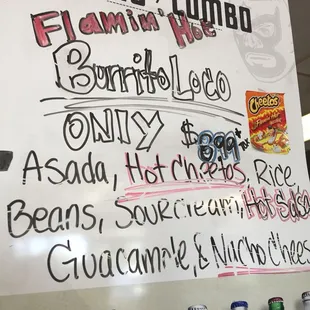 COMBO
Flamin' Hot
Burrito Loco
ONLY $8.99 + TAX
Cheetos
Asada, Hot Cheetos, Rice
Beans, Sour Cream, Hot Salsa
Guacamole, & Nacho Chees